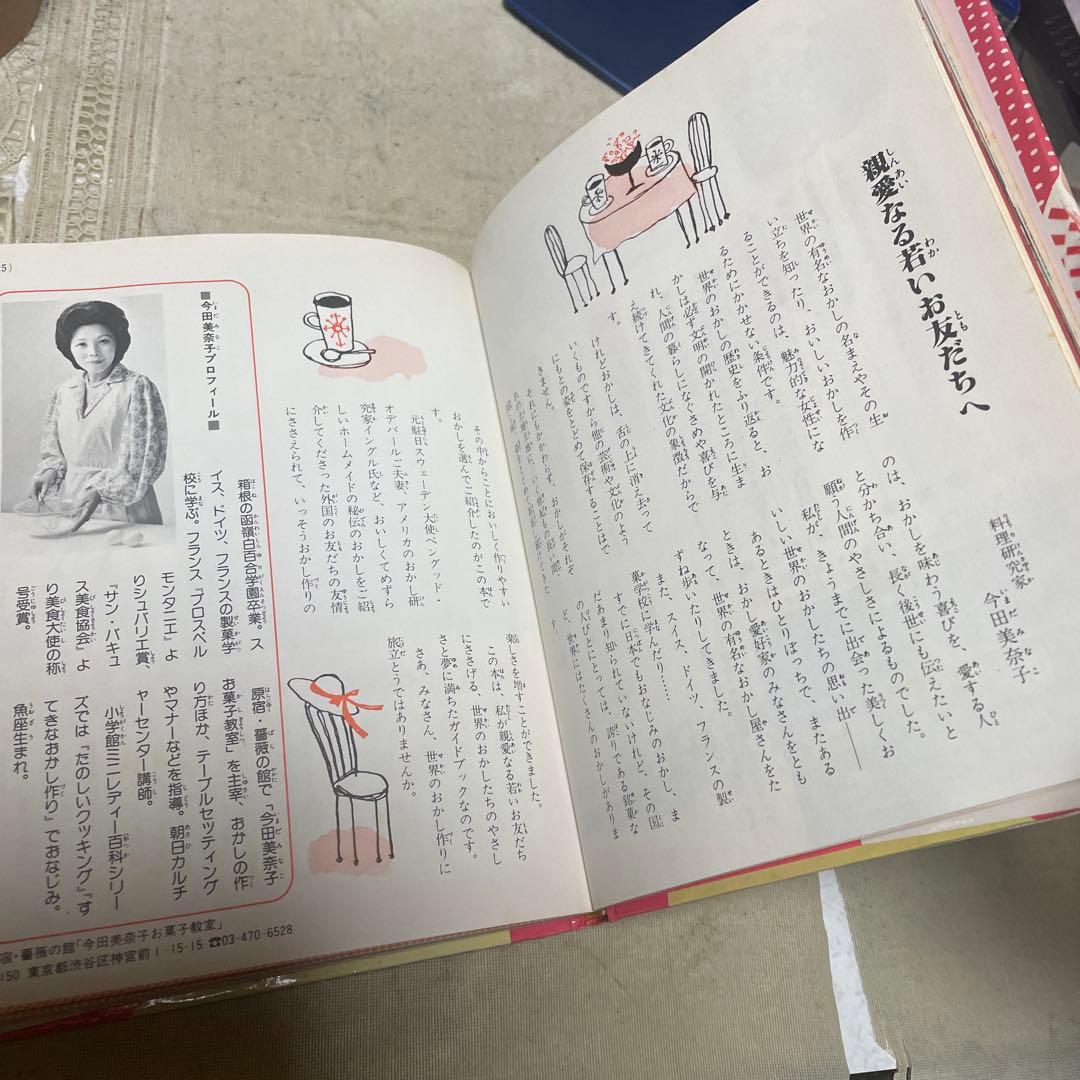 親愛なる若いお友だちへ
料理研究家 今田美奈子
世界の有名なおかしの名まえやその生
い立ちを知ったり、おいしいおかしを作
ることができるのは、魅力的な女性にな
るためにかかせない条件です。
世界のおかしの歴史をふり返ると、お
かしは必ず文明の開かれたところに生ま
れ、人間の暮らしになぐさめや喜びを与
え続けてきてくれた文化の象徴だからで
す。
けれどおかしは、舌の上に消え去って
いくものですから他の芸術や文化のよう
にもとの姿をとどめて保存することはで
きません。
それにもかかわらず、おかしがそれぞ
のは、おかしを味わう喜びを、愛する人
と分かち合い、長く後世にも伝えたいと
願う人間のやさしさによるものでした。
私が、きょうまでに出会った美しくお
いしい世界のおかしたちの思い出――
あるときはひとりぼっちで、またある
ときは、お 愛好家のみなさんをとも
なって、世界の有名なおかし屋さんをた
ずね歩いたりしてきました。
また、スイス、ドイツ、フランスの製
菓学校に学んだり……。
すでに日本でもおなじみのおかし、ま
だあまり知られていないけれど、その国
の人びとにとっては、誇りである銘菓な
ど、世界にはたくさんのおかしがありま
す。
その中からことにおいしく作りやすい
おかしを選んでご紹介したのがこの本で
す。
元駐日スウェーデン大使ベングッド・
オデバールご夫妻、アメリカのおかし研
究家イングル氏など、おいしくてめずら
しいホームメイドの秘伝のおかしをご紹
介してくださった外国のお友だちの友情
にささえられて、いっそうおかし作りの
楽しさを増すことができました。
この本は、私が親愛なる若いお友だち
にささげる、世界のおかしたちのやさし
さと夢に満ちたガイドブックなのです。
さあ、みなさん、世界のおかし作りに
旅立とうではありませんか。
■今田美奈子プロフィール■
箱根の函嶺白百合学園卒業。ス
イス、ドイツ、フランスの製菓学
校に学ぶ。フランス『プロスペル
モンタニエ』よ
りシュバリエ賞
『サン・バキュ
ス美食協会』よ
り美食大使の称
号受賞。
原宿・薔薇の館で「今田美奈子
お菓子教室」を主宰、おかしの作
り方ほか、テーブルセッティング
やマナーなどを指導。朝日カルチ
ャーセンター講師。
小学館ミニレディー百科シリー
ズでは『たのしいクッキング』『す
てきなおかし作り』でおなじみ。
魚座生まれ。
宿・薔薇の館「今田美奈子お菓子教室」
150 東京都渋谷区神宮前1-15-15 ☎03-470-6528